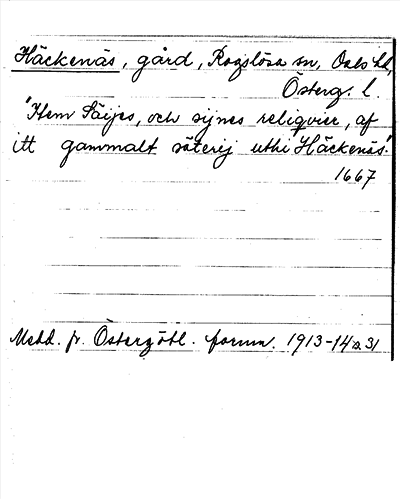 Häckenäs, gård, Rogslösa sn, Dals hd,
Österg. l.
"Item Säijes, och synes reliqvier, af
itt gammalt säterij uthi Häckenäs".
1667
Medd. fr. Östergötl. fornm. 1913-14 s. 31